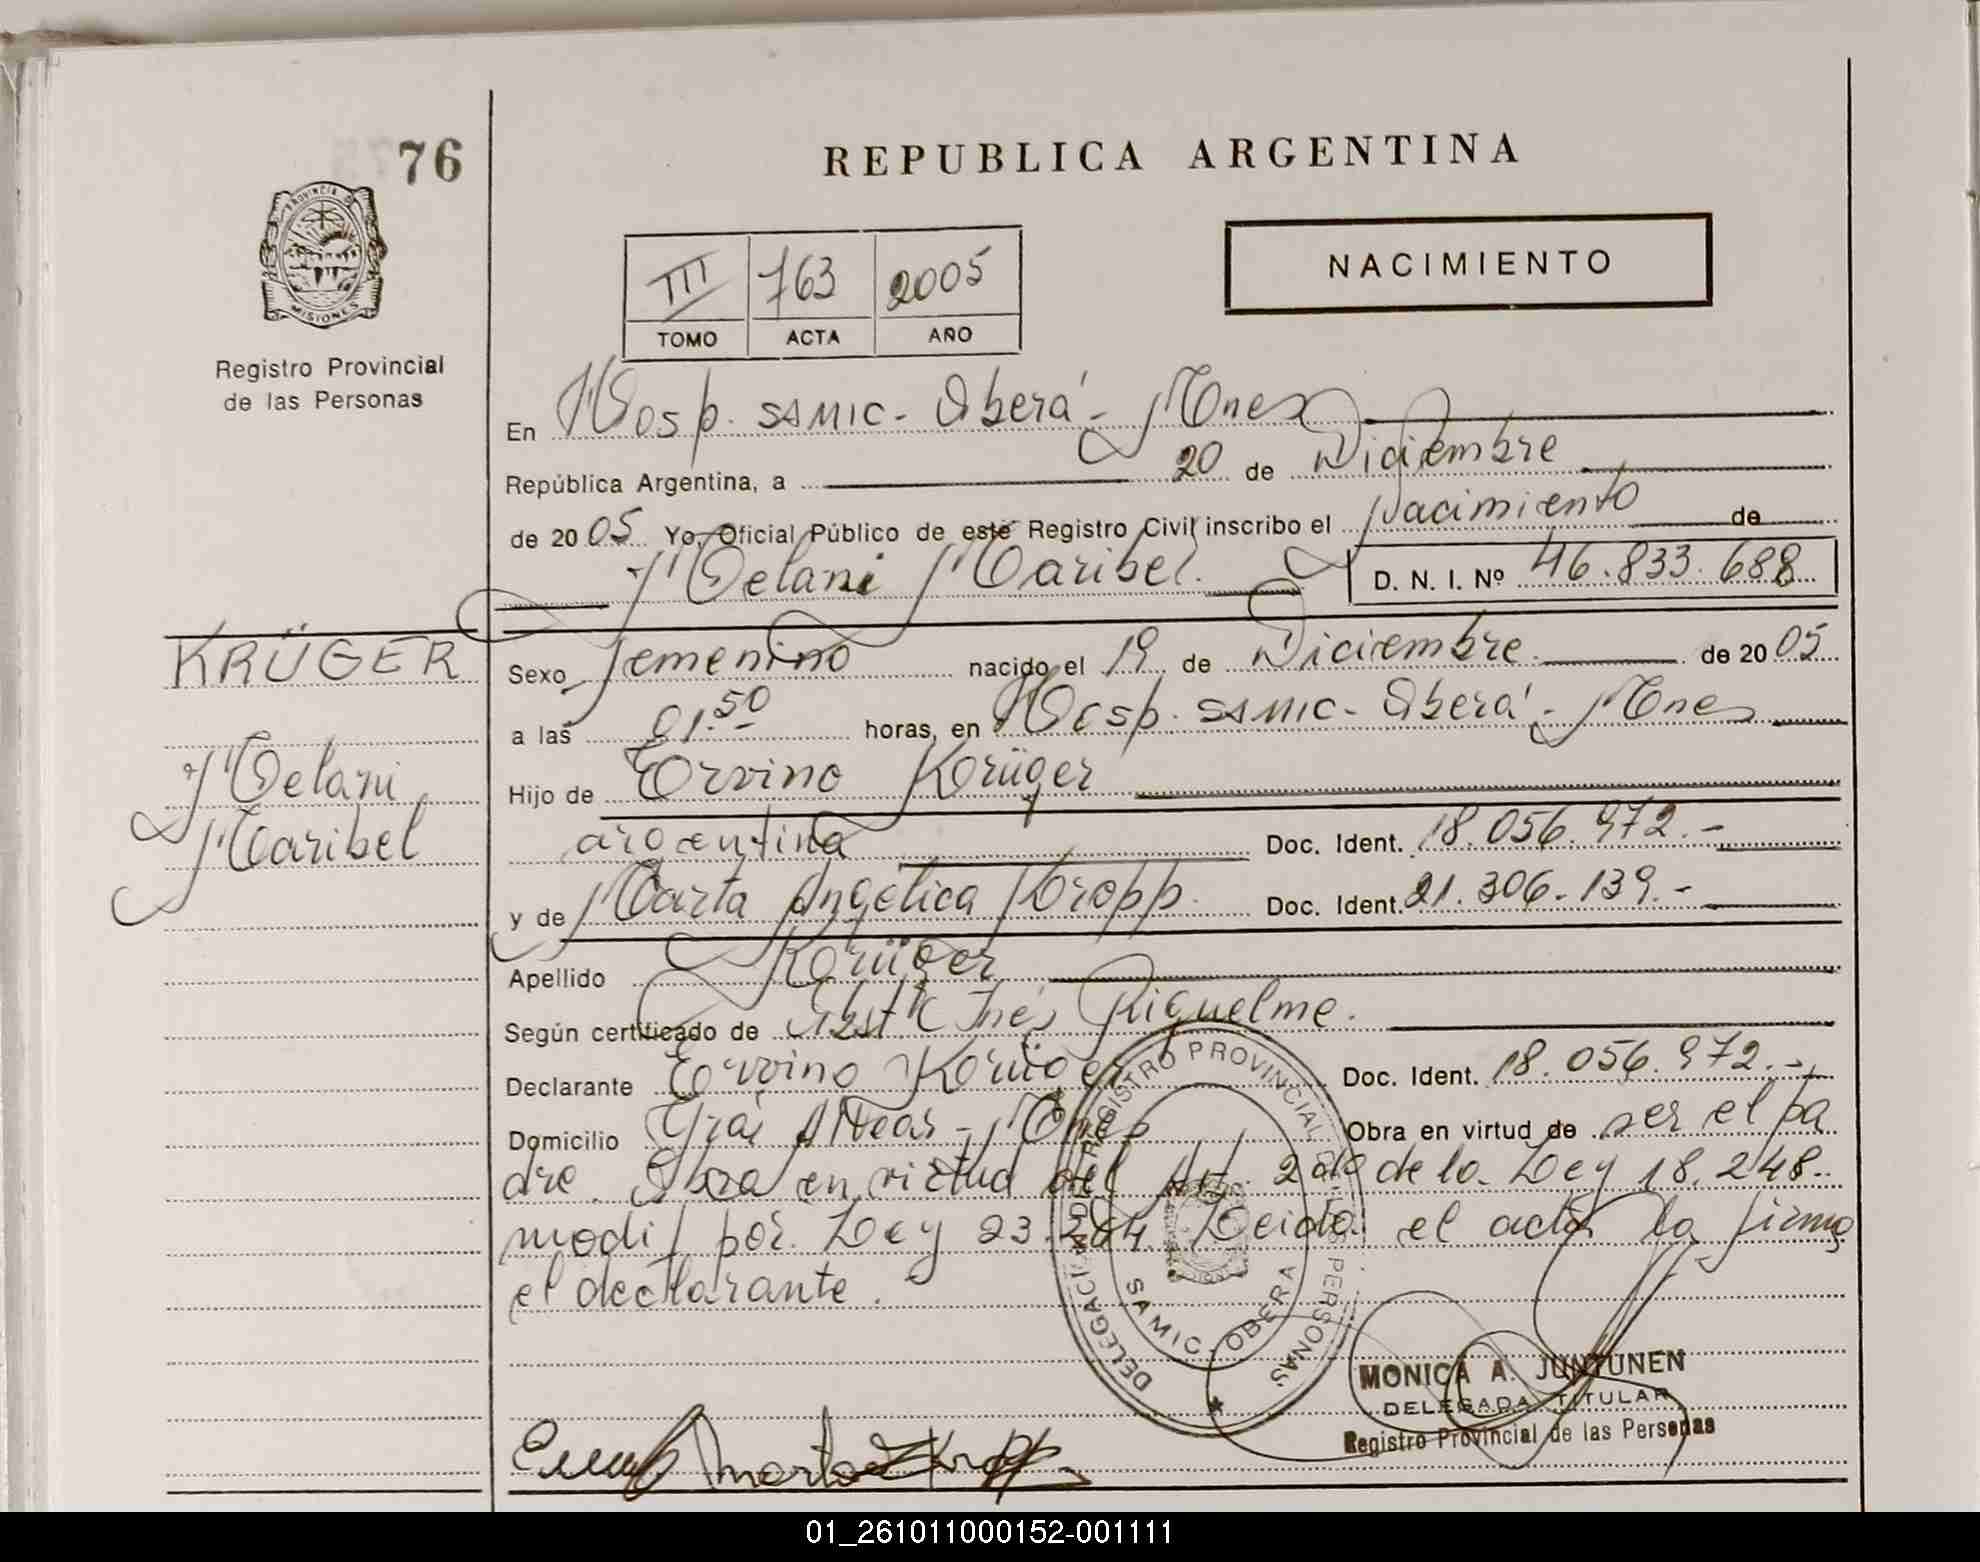 76
REPUBLICA ARGENTINA
PROVINCIA D
MISIONES
Registro Provincial
de las Personas
NACIMIENTO
III 763 2005
TOMO ACTA AÑO
En Hosp. SAMIC - Oberá - Mnes
República Argentina, a 20 de Diciembre
de 2005 Yo, Oficial Público de este Registro Civil inscribo el Nacimiento de
Melani Maribel. D. N. I. Nº 46.833.688
KRÜGER
Melani
Maribel
Sexo femenino nacido el 19 de Diciembre de 2005
a las 01.50 horas, en Hosp. SAMIC - Oberá - Mnes
Hijo de Ervino Krüger
argentina Doc. Ident. 18.056.972.-
y de Marta Angélica Kropp. Doc. Ident. 21.306.139.-
Apellido Krüger
Según certificado de Obst. Inés Riquelme.
Declarante Ervino Krüger Doc. Ident. 18.056.972.-
Domicilio Gral Alvear - Mnes Obra en virtud de ser el pa
dre. Obra en virtud del Art. 2do de la Ley 18.248.
modif por Ley 23.264 Leida el acta la firma
el declarante.
REGISTRO PROVINCIAL DE LAS PERSONAS
DELEGACI
SAMIC - OBERA
MONICA A. JUNTUNEN
DELEGADA TITULAR
Registro Provincial de las Personas
Marta Kropp
01_261011000152-001111